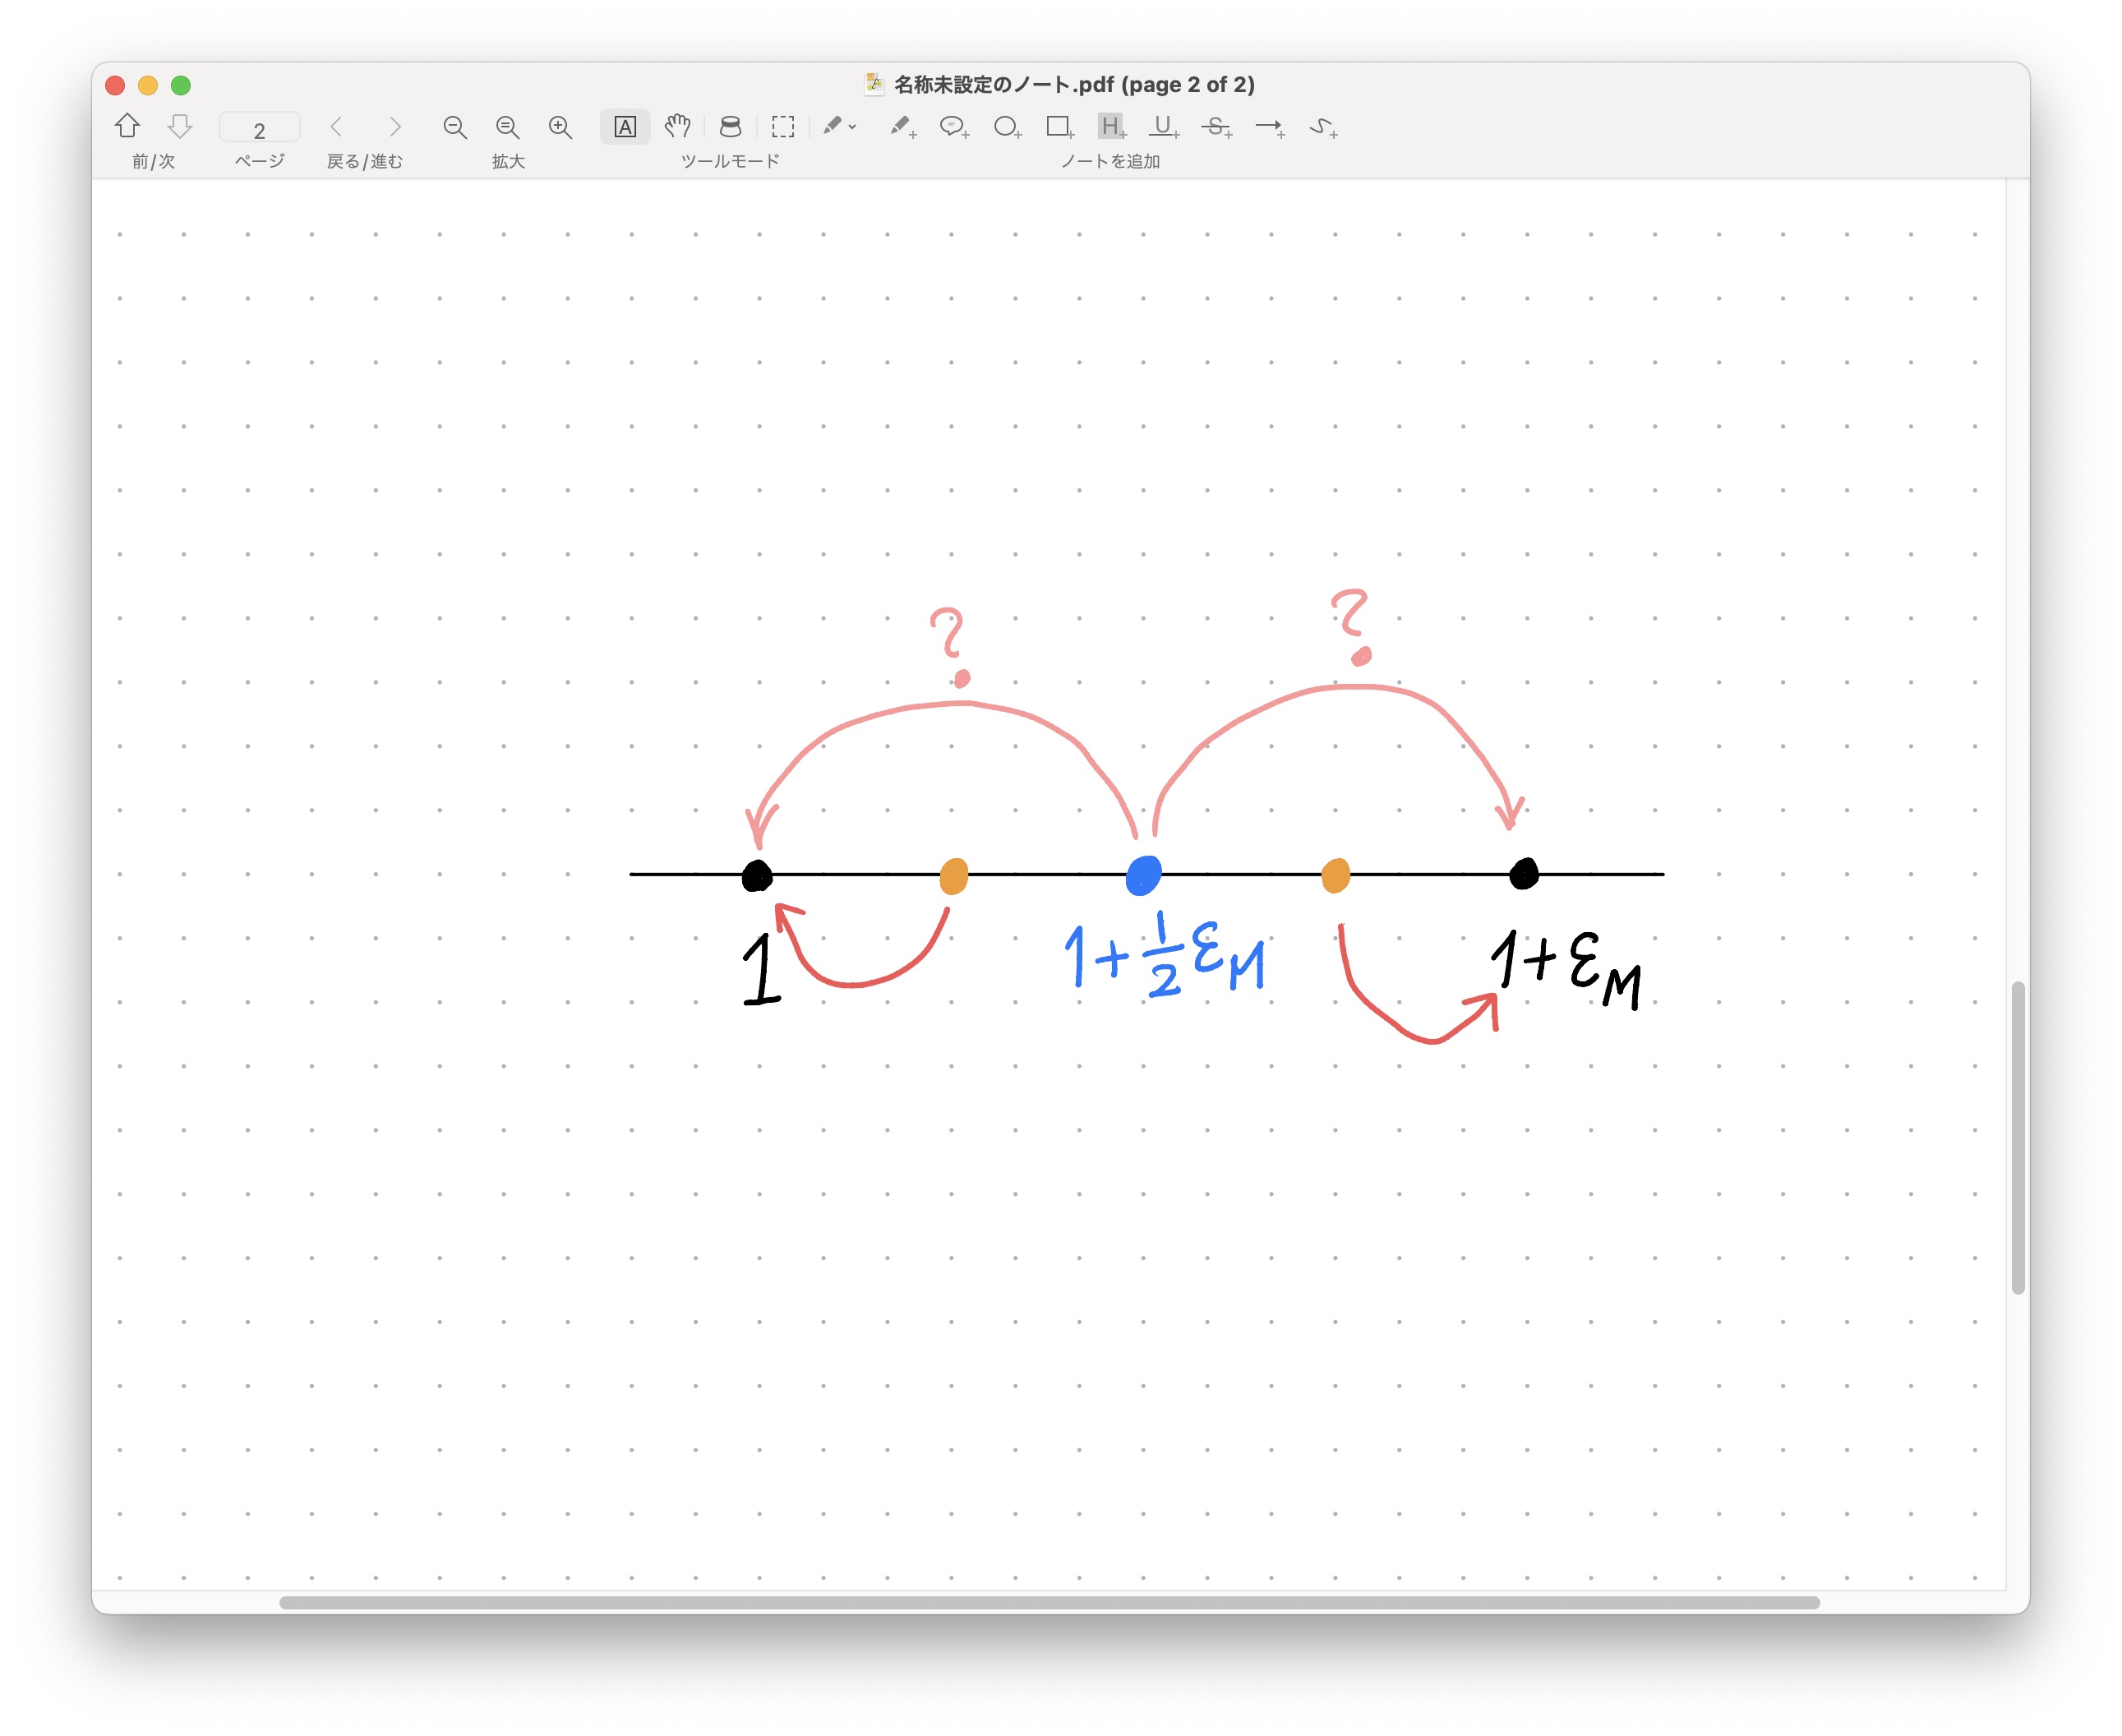 名称未設定のノート.pdf (page 2 of 2)
2
A
H
U
S
前/次
ページ
戻る/進む
拡大
ツールモード
ノートを追加
?
?
1
1+½εM
1+εM